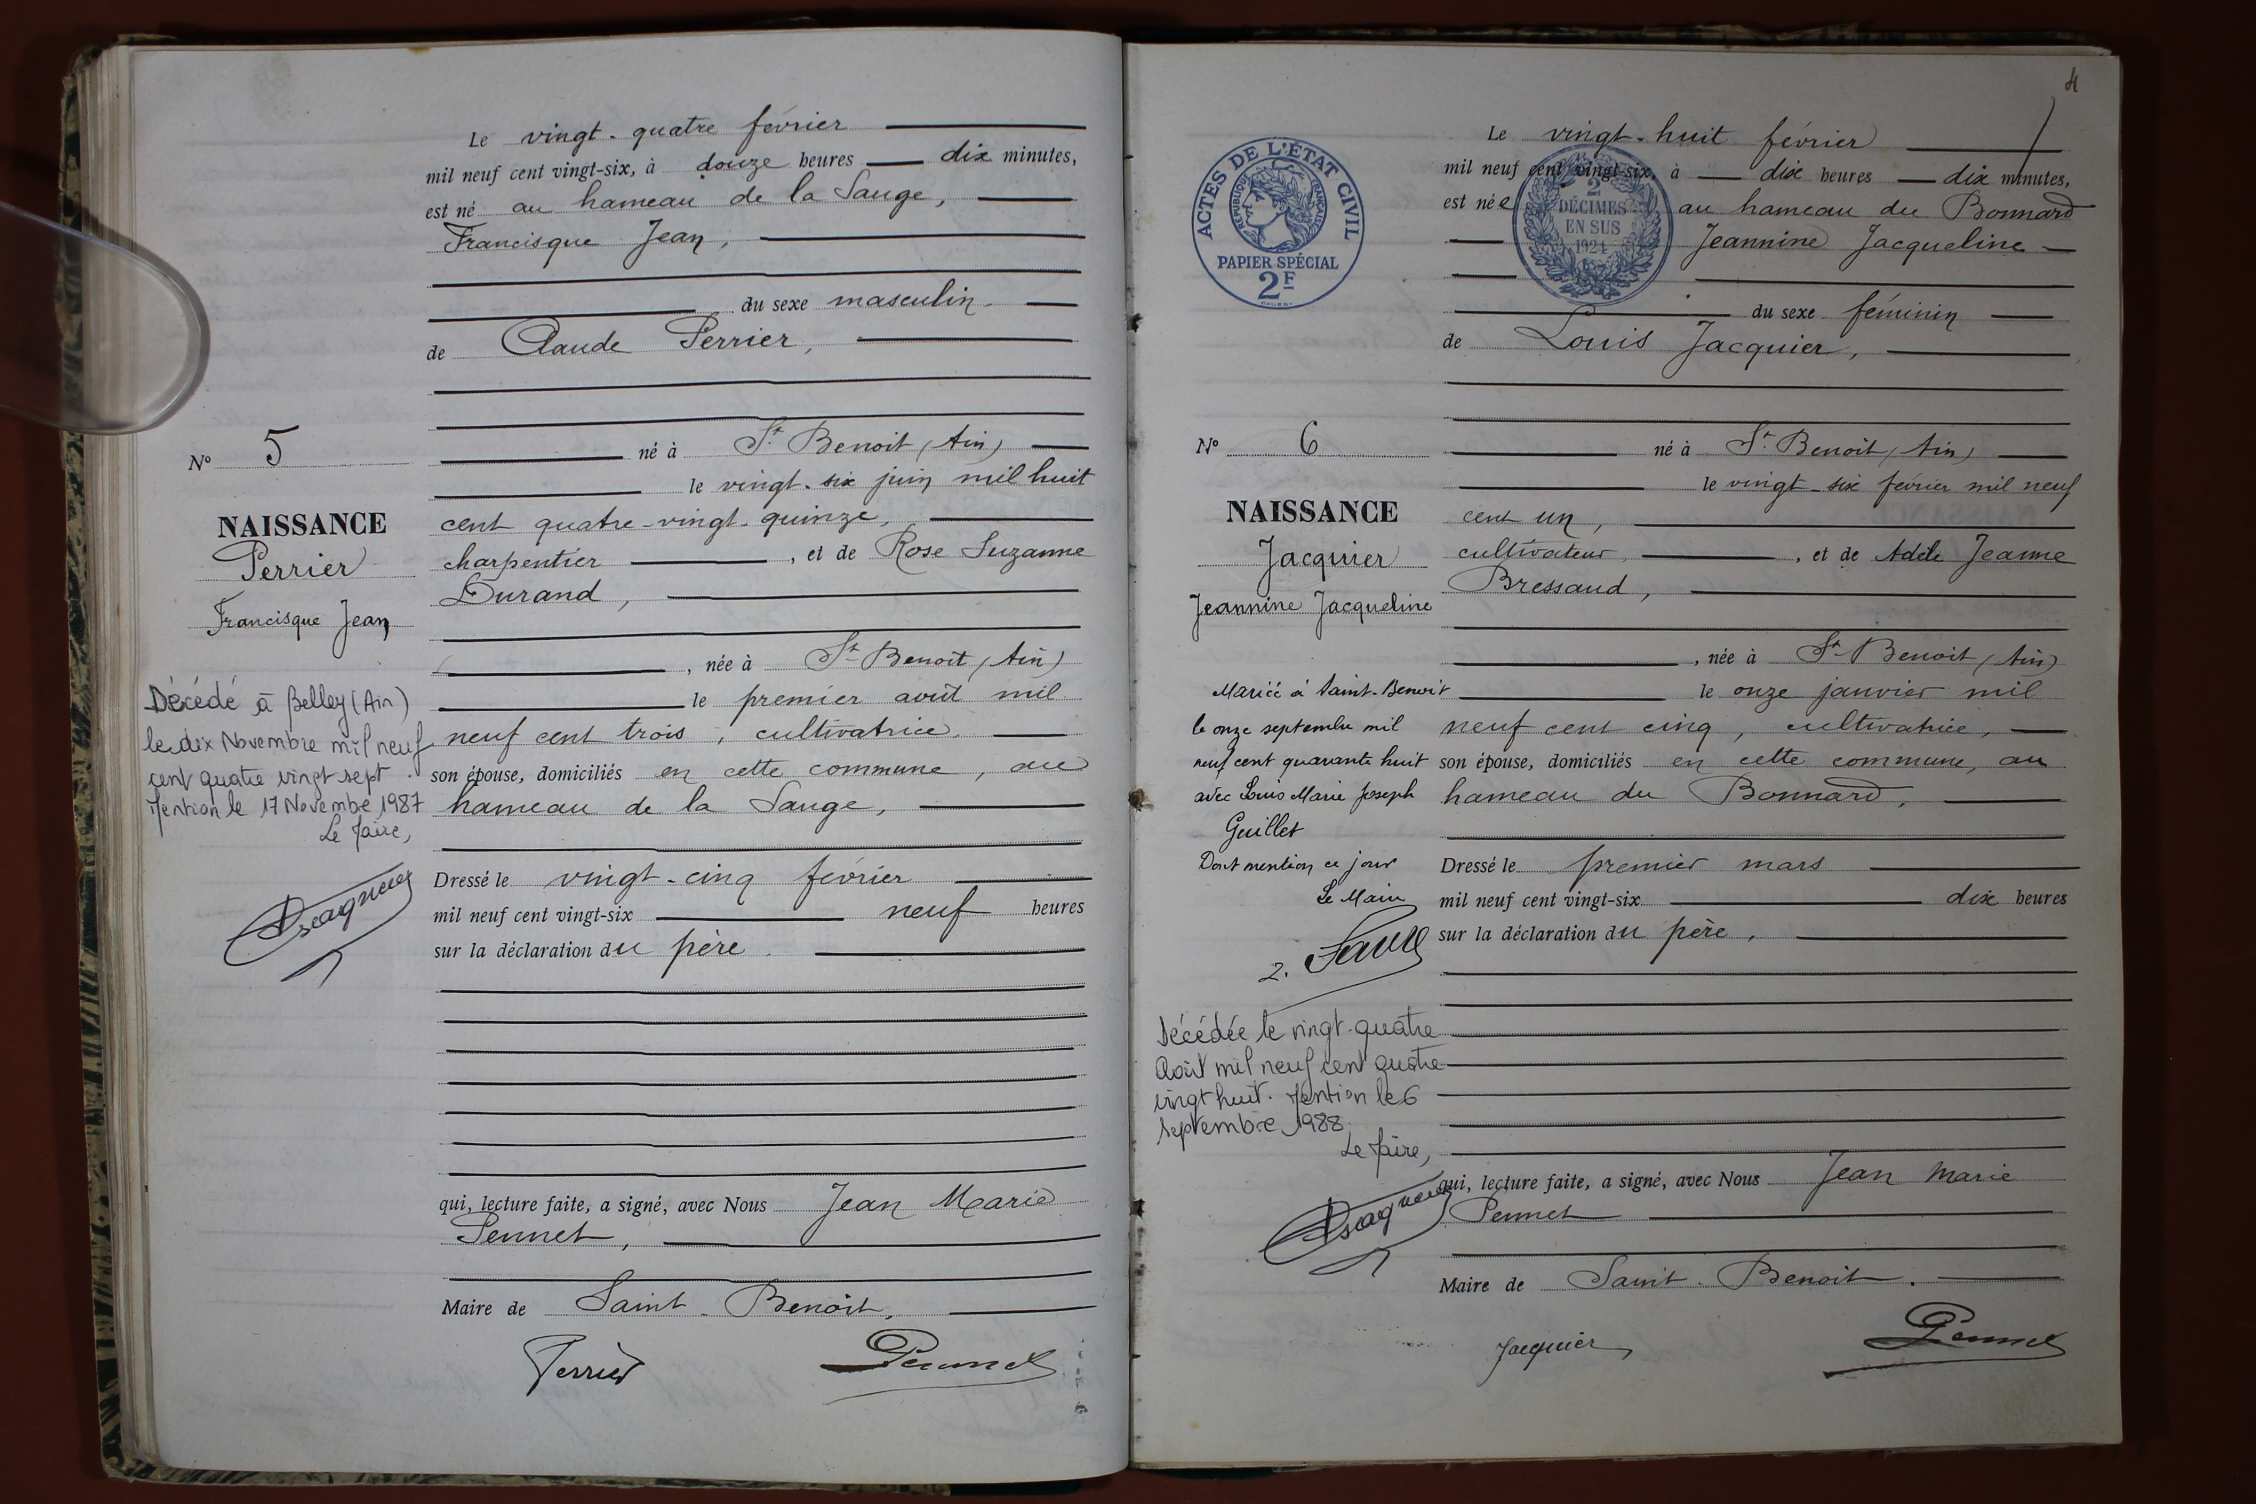 Le vingt-quatre février
mil neuf cent vingt-six, à douze heures dix minutes,
est né au hameau de la Sauge,
Francisque Jean,
du sexe masculin
de Claude Perrier,
né à St Benoit (Ain)
le vingt-six juin mil huit
cent quatre-vingt-quinze,
charpentier, et de Rose Suzanne
Durand,
, née à St Benoit (Ain)
le premier août mil
neuf cent trois, cultivatrice,
son épouse, domiciliés en cette commune, au
hameau de la Sauge,
Dressé le vingt-cinq février
mil neuf cent vingt-six neuf heures
sur la déclaration du père.
qui, lecture faite, a signé, avec Nous Jean Marie
Pennet,
Maire de Saint-Benoit,
Perrier Pennet
No 5
NAISSANCE
Perrier
Francisque Jean
Décédé à Belley (Ain)
le dix Novembre mil neuf
cent quatre vingt sept.
Mention le 17 Novembre 1987
Le Maire,
4
Le vingt-huit février
mil neuf cent vingt-six, à dix heures dix minutes,
est née au hameau du Bonnard
Jeannine Jacqueline
du sexe féminin
de Louis Jacquier,
né à St Benoit (Ain)
le vingt-six février mil neuf
cent un,
cultivateur, et de Adèle Jeanne
Bressaud,
, née à St Benoit (Ain)
le onze janvier mil
neuf cent cinq, cultivatrice,
son épouse, domiciliés en cette commune, au
hameau du Bonnard,
Dressé le premier mars
mil neuf cent vingt-six dix heures
sur la déclaration du père,
qui, lecture faite, a signé, avec Nous Jean Marie
Pennet
Maire de Saint-Benoit.
Jacquier Pennet
ACTES DE L'ÉTAT CIVIL
RÉPUBLIQUE FRANÇAISE
PAPIER SPÉCIAL
2F
2
DÉCIMES
EN SUS
1924
No 6
NAISSANCE
Jacquier
Jeannine Jacqueline
Mariée à Saint-Benoit
le onze septembre mil
neuf cent quarante huit
avec Louis Marie Joseph
Guillet
Dont mention ce jour
Le Maire
2.
Décédée le vingt-quatre
Août mil neuf cent quatre
vingt huit. Mention le 6
septembre 1988.
Le Maire,